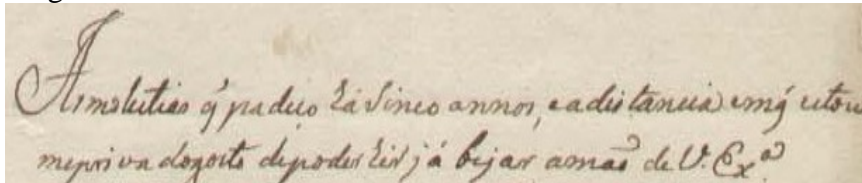 As molestias q' padeço há sinco annos, e a distancia em q' estou
me priva do gosto de poder hir já bejar a maõ de V. Exª